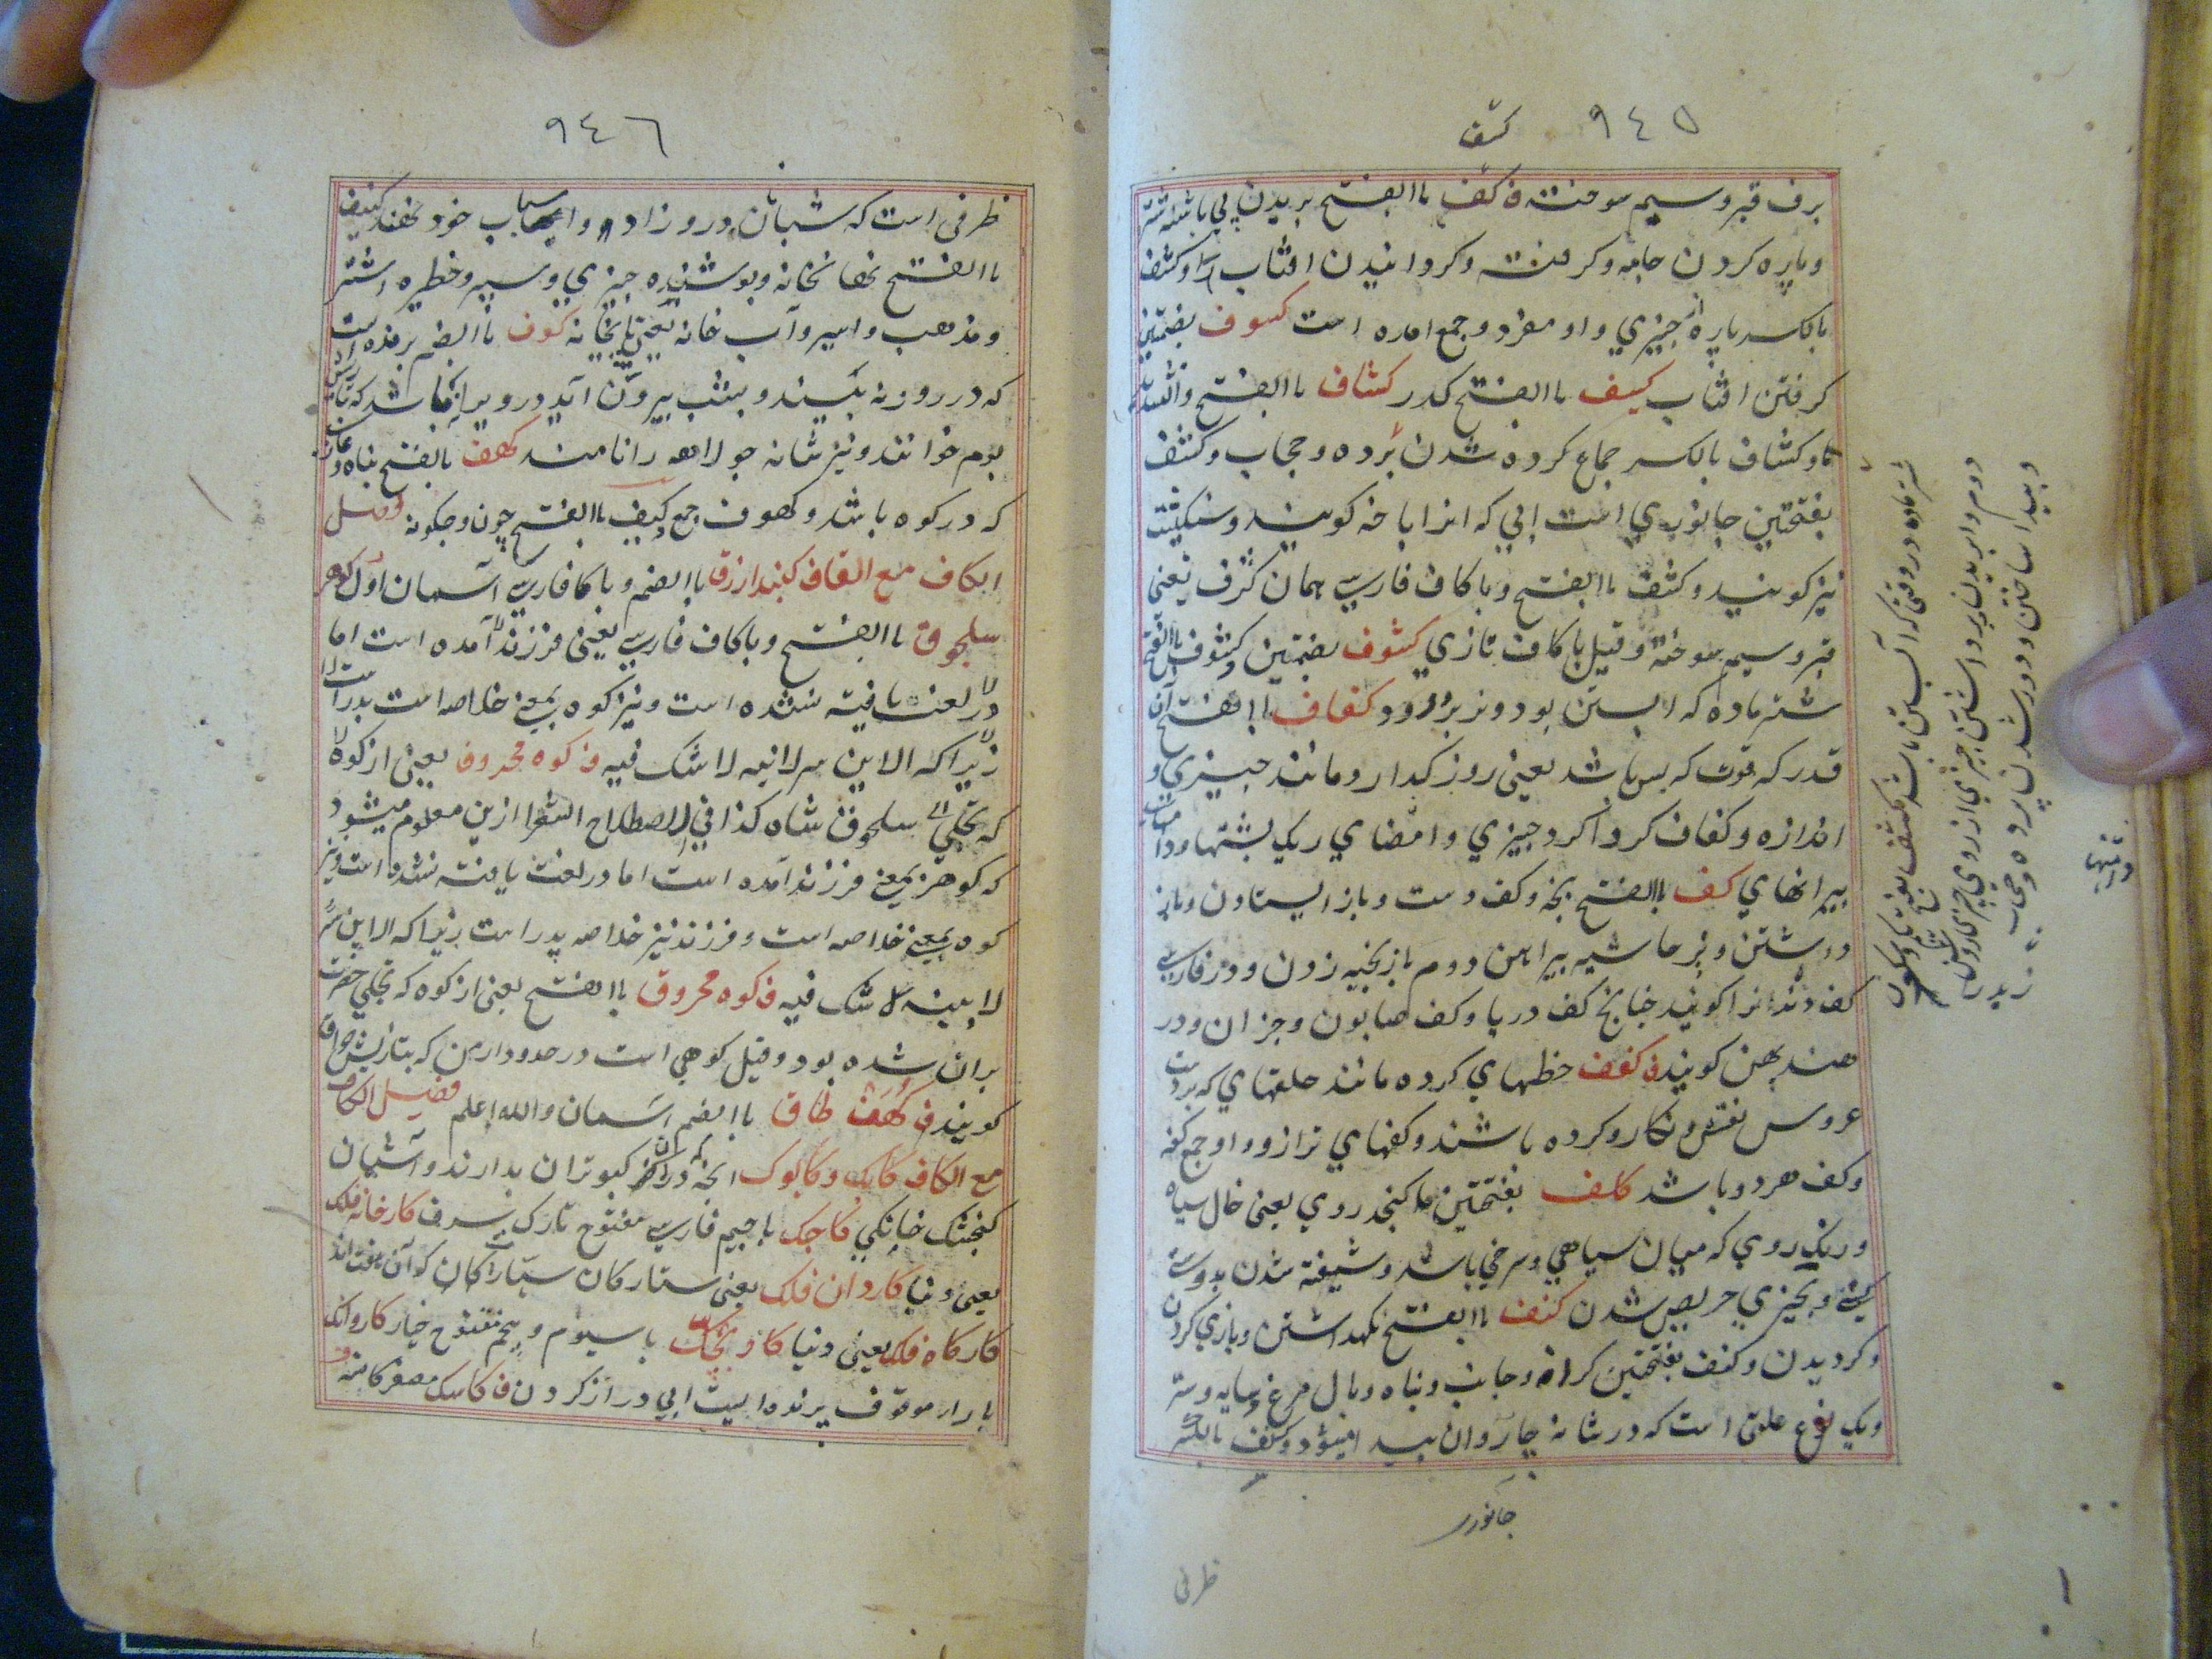 ٩٤٥
کشف
برف قبر و سیم سوخته ف کسف باالفتح بریدن پی پاشنه شتر
و پاره کردن جامه و کرفته و کردانیدن افتاب را و کسف
بالکسر پاره از چیزي و او مفرد و جمع امده است کسوف بضمتین
کرفتن افتاب کسیف باالفتح کدر کشاف باالفتح
و کشاف بالکسر جماع کرده شدن پرده و حجاب و کشف
بفتحتین جانوري است ابی که انرا باخه کویند و سنکپشت
نیز کویند و کشف باالفتح و با کاف فارسی همان کزف یعنی
قبر و سیم سوخته و قیل با کاف تازي کشوف بضمتین و کشوف باالفتح
شتر ماده که ابستن بود و نر برو رود کفاف باالفتح آن
قدر که قوت که بس باشد یعنی روز کذار و مانند چیزي و
اندازه و کفاف کردا کرد چیزي و امضاي ریک پشتها و
پیرانهاي کف باالفتح پنجه و کف دست و باز ایستادن و باز
داشتن و بر حاشیه پیراهن دوم باز بخیه زدن و در فارسی
کف دندانرا کویند چنانچ کف دریا و کف صابون و جزان و در
هند پهن کویند ف کفف خطهاي کرده مانند حلقهاي که بردست
عروس نقش و نکار کرده باشند و کفهاي ترازو و او جمع کفه
و کف هر دو باشد کلف بفتحتین ماکنجد روي یعنی خال سیاه
و رنک روي که میان سیاهی و سرخی باشد و شیفته شدن بدوستی
کسی و بچیزي حریص شدن کنف باالفتح نکهداشتن و یاري کردن
و کردیدن و کنف بفتحتین کرانه و جانب و پناه و بال مرغ و سایه و ستر
و یک نوع علتی است که در شانه چاروان پیدا میشود و کنف بالکسر
جانوري
ظرفی
شتر ماده در وقتی که آبستن باشد کشف بفتح یکم و سکون
دوم وا بریدن پرداشتن چیزي از روي چیزي
و پیدا ساختن و دور شدن پرده و حجاب
٩٤٦
ظرفی است که شبانان درو زاد و اسباب خود نهند کنیف
باالفتح نهانخانه و پوشنده چیزي و سپر و حظیره اشتر
و مذهب و اسیر و آب خانه یعنی پایخانه کوف باالضم پرنده است
که در روز نه بیند و بشب بیرون اید در ویرانها باشد که
بوم خوانند و نیز شانه جولاهه را نامند کهف بالفتح پناه و غار
که در کوه باشد و کهوف جمع کیف باالفتح چون و چکونه فصل
الکاف مع القاف کنبد ازرق باالضم و با کاف فارسی آسمان اول کوهر
سلجوق باالفتح و با کاف فارسی یعنی فرزند آمده است اما
در لغت یافته نشده است و نیز کوه بمعنی خلاصه است پدر است
زیرا که الابن سر لابیه لا شک فیه ف کوه محروق یعنی از کوه
که تجلی سلجوق شاه کذا فی اصطلاح الشعرا ازین معلوم میشود
که کوهر بمعنی فرزند آمده است اما در لغت یافته نشده است و نیز
کوه بمعنی خلاصه است و فرزند نیز خلاصه پدر است زیرا که الابن سر
لابیه لا شک فیه ف کوه محروق باالفتح یعنی از کوه که تجلی حضرت
بران شده بود و قیل کوهی است در حدود ارمن که بتازیش
کویند ف کهف طاق باالضم آسمان والله اعلم فصل الکاف
مع الکاف کابک و کابوک انچه در آن کبوتران بدارند و آشیان
کنجشک خانکی کاجک با جیم فارسی مفتوح تارک سر ف کارخانه فلک
یعنی دنیا کاروان فلک یعنی ستارکان سیارکان
کارکاه فلک یعنی دنیا کاونجک با سیوم و پنجم مفتوح خیار کاروانک
با راء موقوف پرنده ایست ابی دراز کردن ف کاسک مصغر کاسه